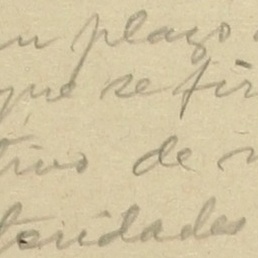 un plazo
que se fir
tivo de
toridades